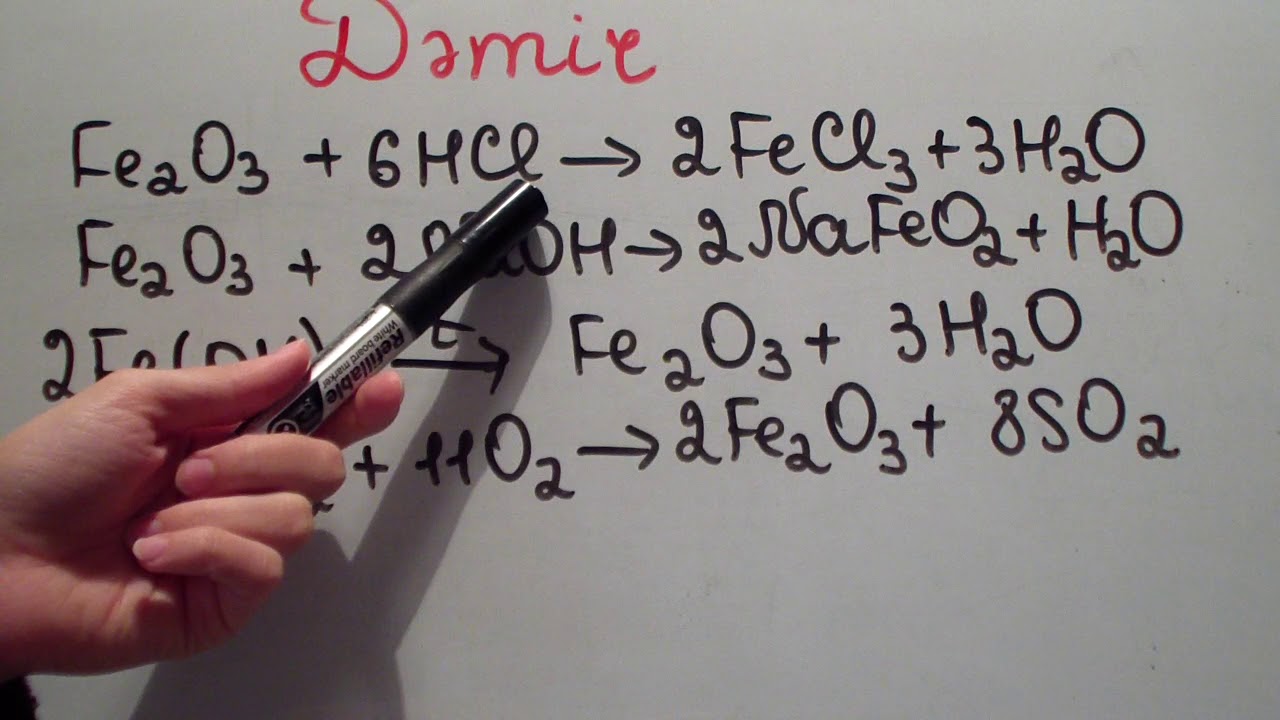 Dəmir
Fe₂O₃ + 6HCl → 2FeCl₃ + 3H₂O
Fe₂O₃ + 2 OH → 2NaFeO₂ + H₂O
2Fe(OH) t → Fe₂O₃ + 3H₂O
₂ + 11O₂ → 2Fe₂O₃ + 8SO₂
Refillable
White board marker